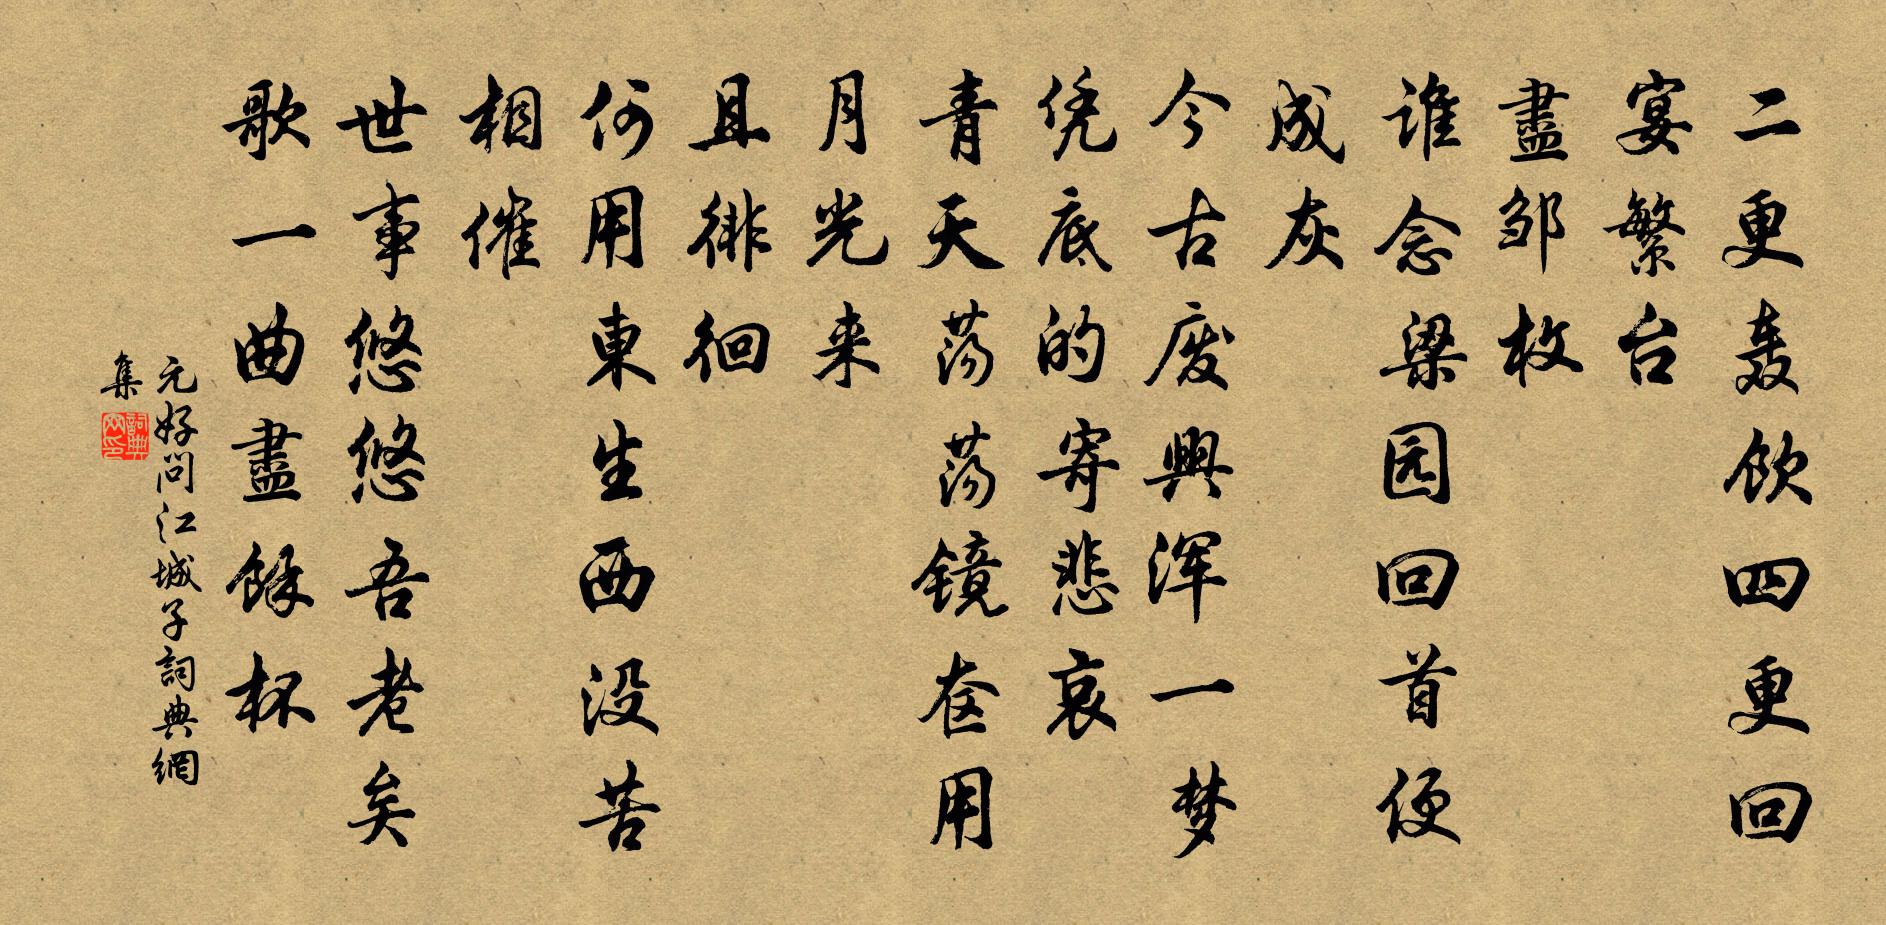 二更轰饮四更回
宴繁台
盡邹枚
谁念梁园回首便
成灰
今古废興浑一梦
凭底的寄悲哀
青天荡荡镜奁用
月光来
且徘徊
何用東生西没苦
相催
世事悠悠吾老矣
歌一曲盡餘杯
元好问江城子詞典網
集
詞典網印